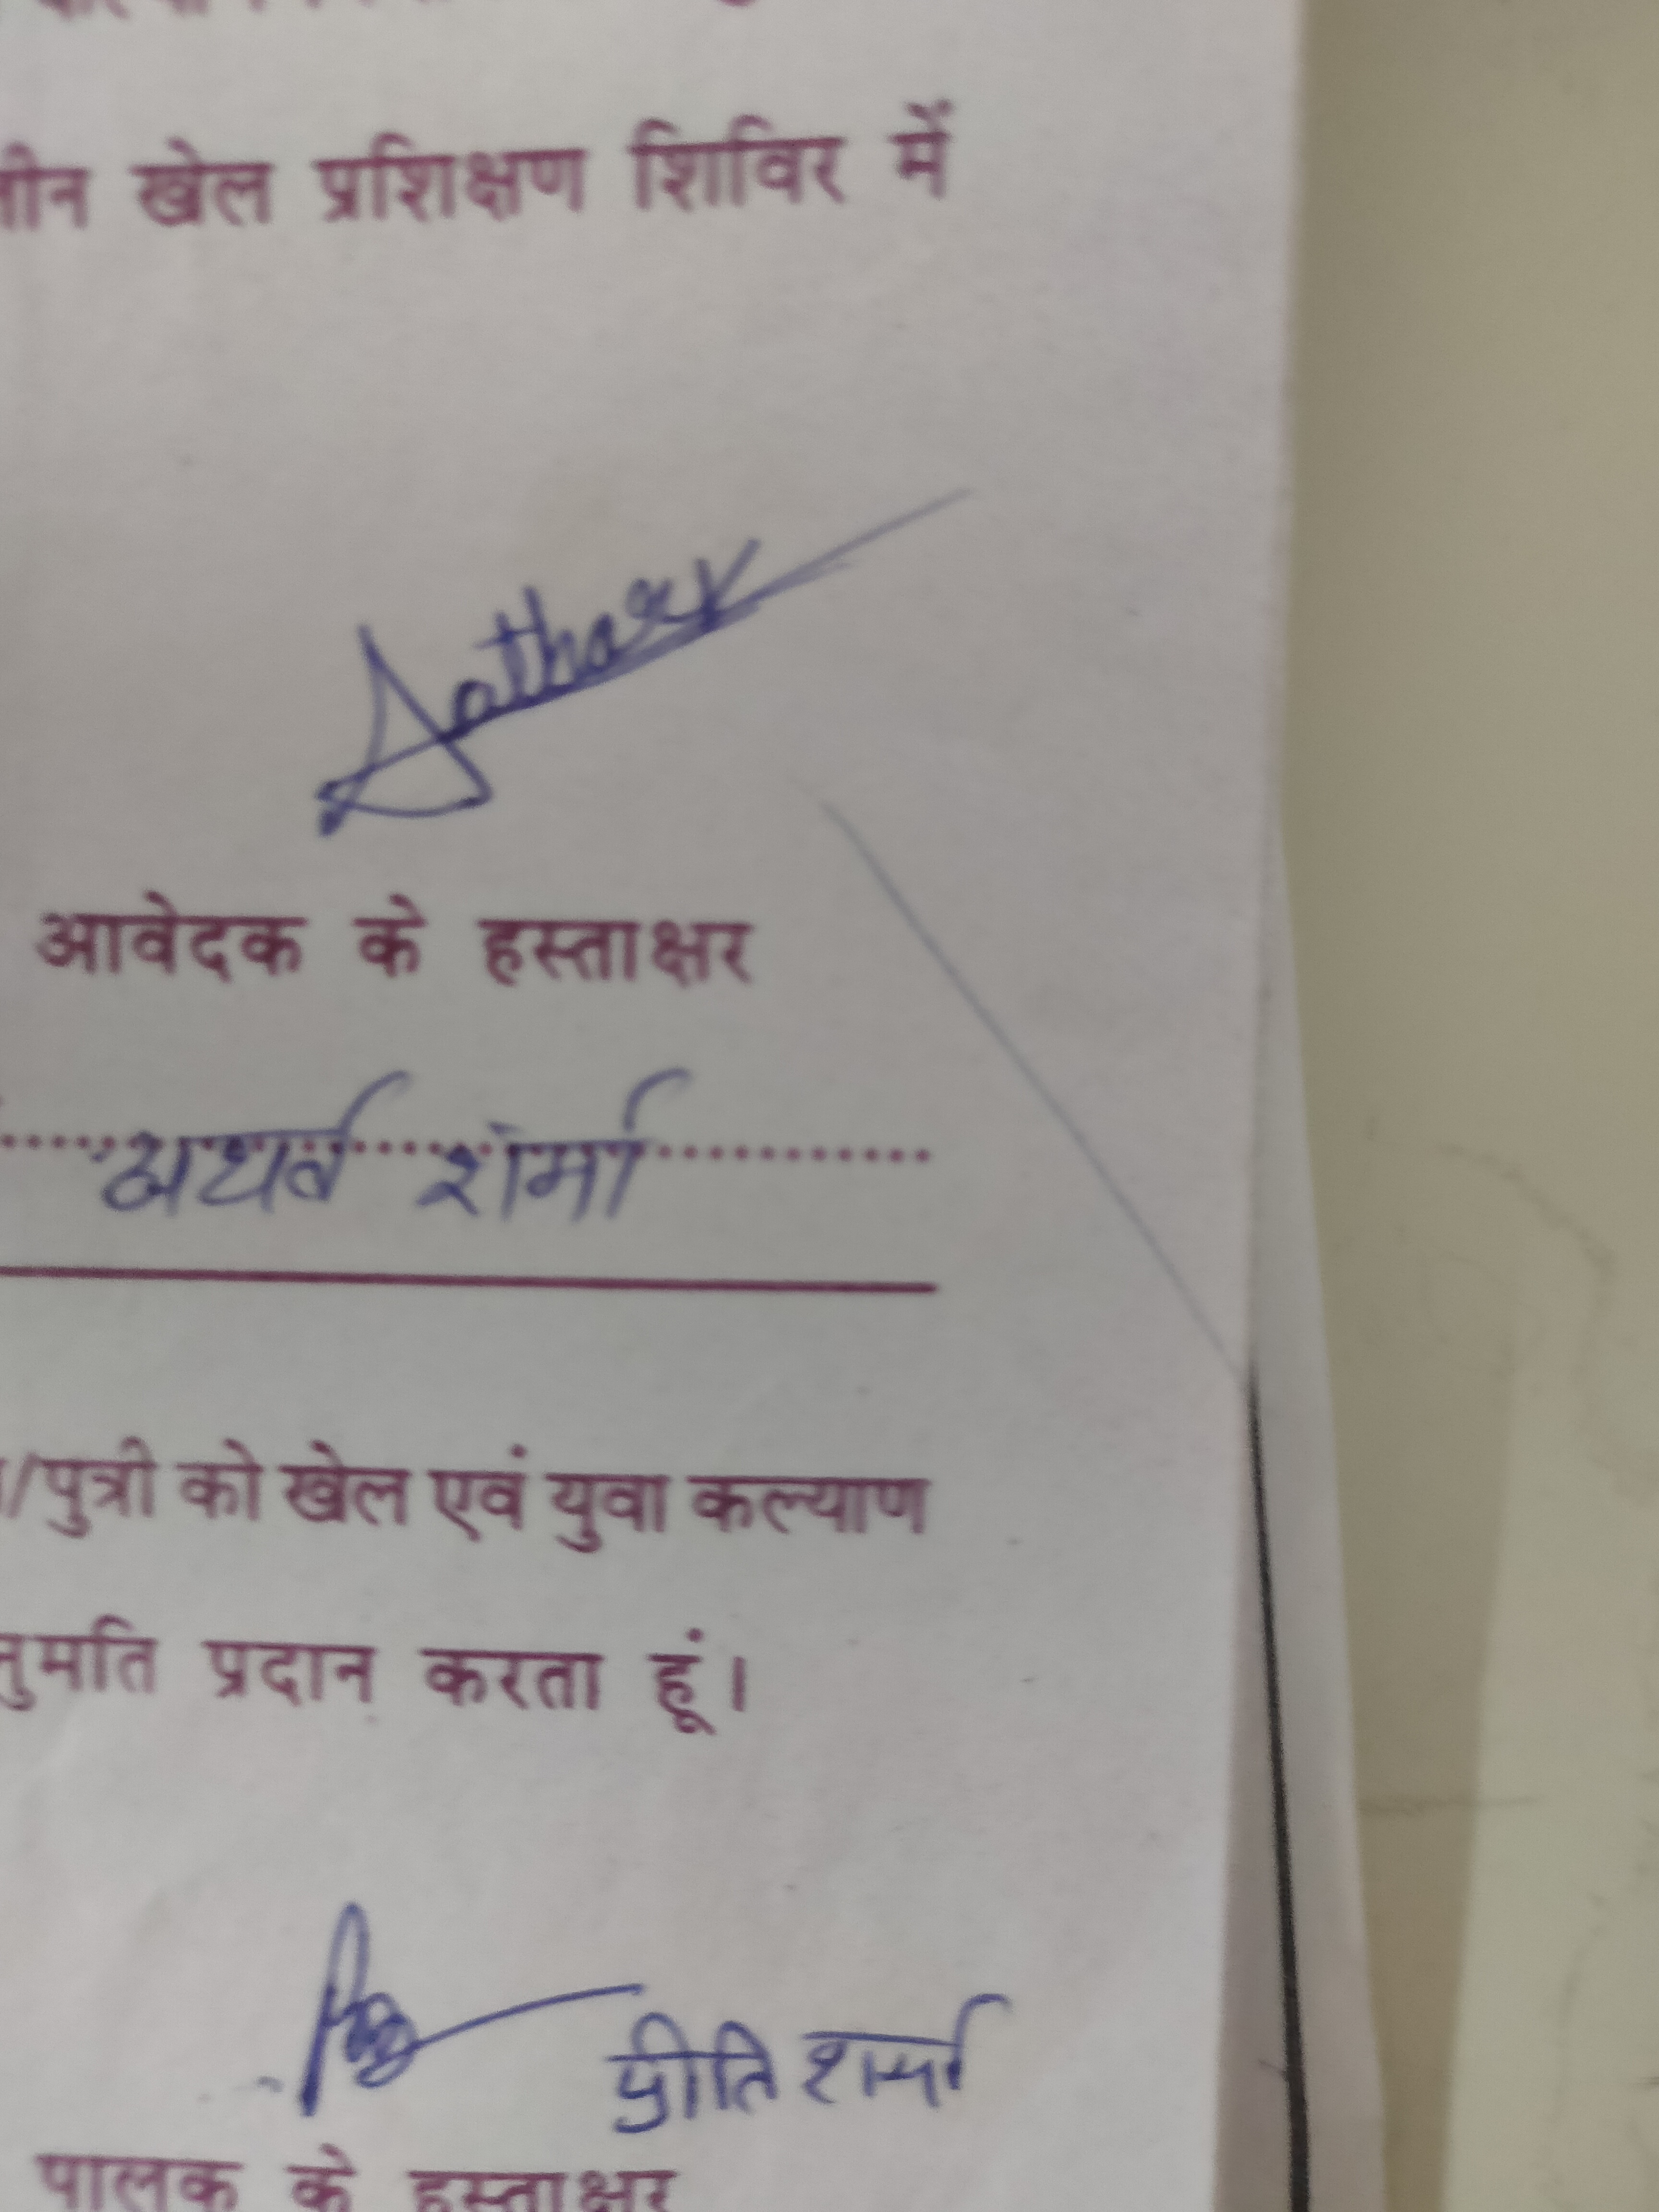 खेल प्रशिक्षण शिविर में
Aatharv
आवेदक के हस्ताक्षर
अथर्व शर्मा
/पुत्री को खेल एवं युवा कल्याण
नुमति प्रदान करता हूं।
प्रीति शर्मा
पालक के हस्ताक्षर